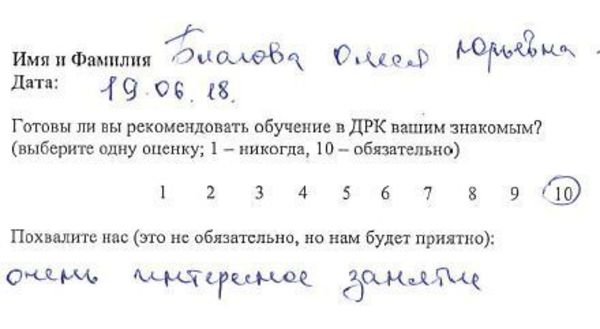 Имя и Фамилия Благова Олеся Юрьевна
Дата: 19.06.18.
Готовы ли вы рекомендовать обучение в ДРК вашим знакомым?
(выберите одну оценку; 1 – никогда, 10 – обязательно)
1 2 3 4 5 6 7 8 9 10
Похвалите нас (это не обязательно, но нам будет приятно):
очень интересное занятие